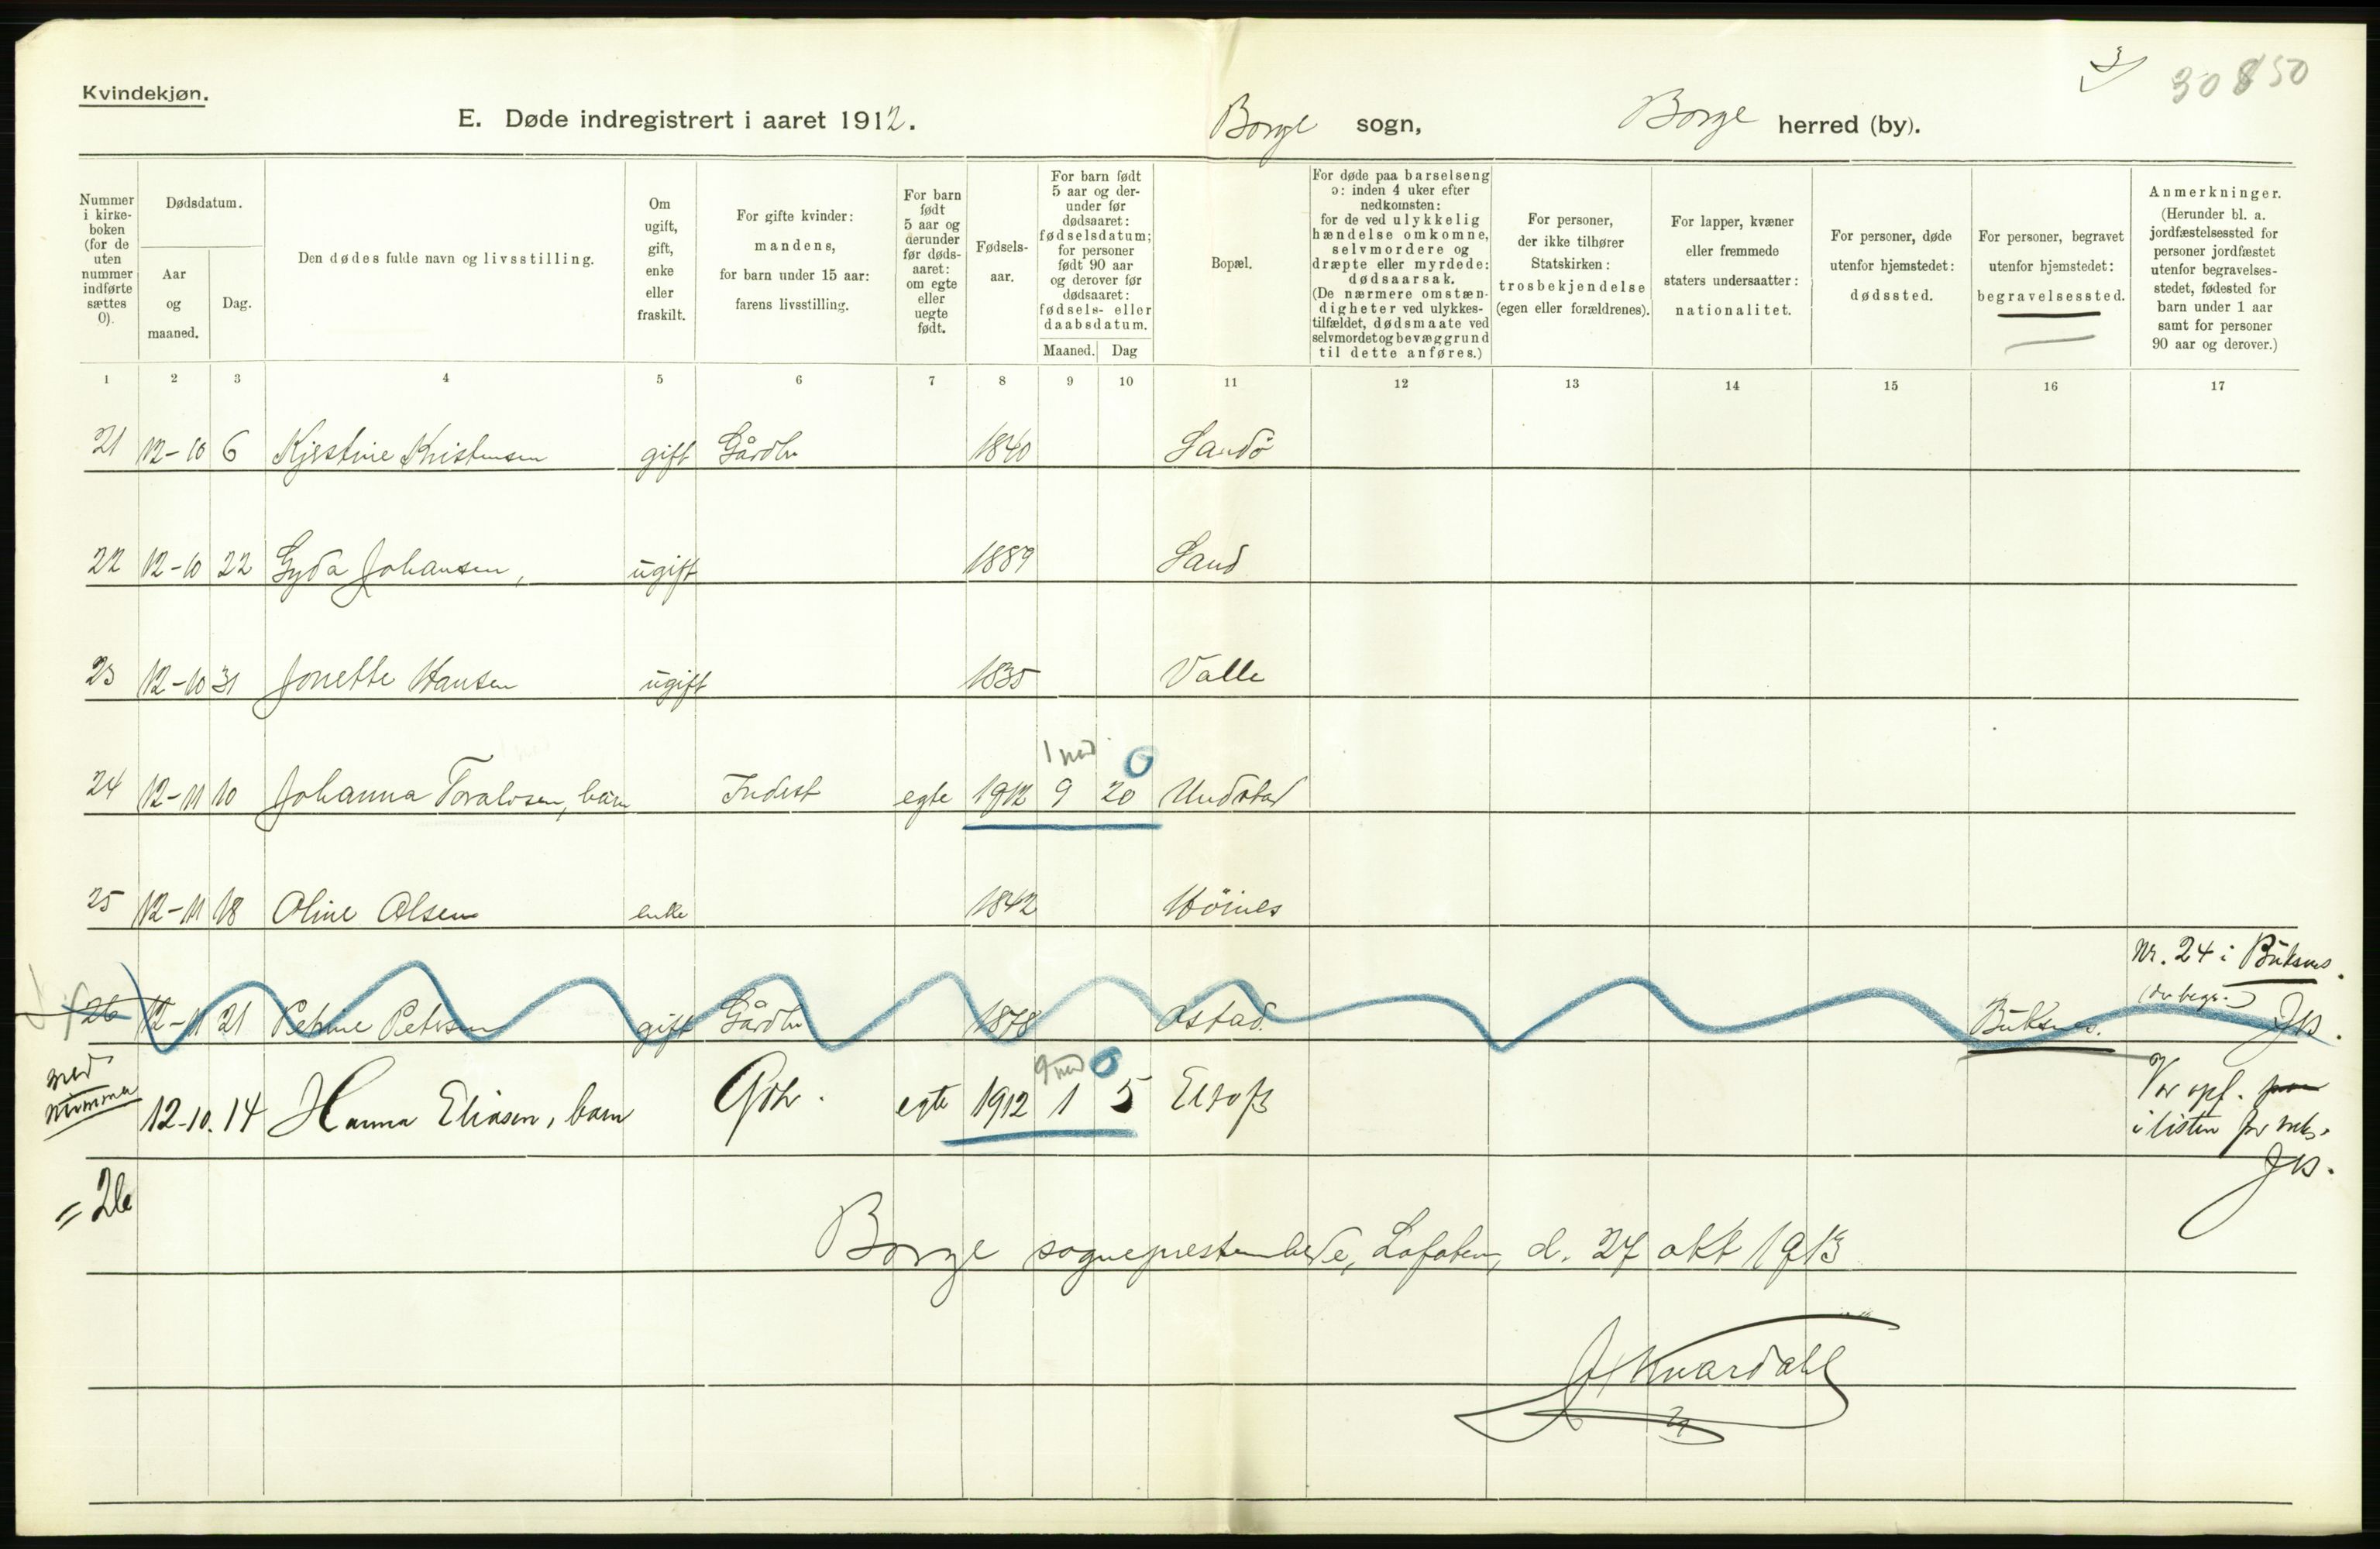 Kvindekjøn.
E. Døde indregistrert i aaret 1912. Borge sogn, Borge herred (by).
3
30850
Nummer i kirke- boken (for de uten nummer indførte sættes 0).
Dødsdatum.
Aar og maaned.
Dag.
Den dødes fulde navn og livsstilling.
Om ugift, gift, enke eller fraskilt.
For gifte kvinder: mandens, for barn under 15 aar: farens livsstilling.
For barn født 5 aar og derunder før døds- aaret: om egte eller uegte født.
Fødsels- aar.
For barn født 5 aar og der- under før dødsaaret: fødselsdatum; for personer født 90 aar og derover før dødsaaret: fødsels- eller daabsdatum.
Maaned. Dag
Bopæl.
For døde paa barselseng ɔ: inden 4 uker efter nedkomsten: for de ved ulykkelig hændelse omkomne, selvmordere og dræpte eller myrdede: dødsaarsak. (De nærmere omstæn- digheter ved ulykkes- tilfældet, dødsmaate ved selvmordet og bevæggrund til dette anføres.)
For personer, der ikke tilhører Statskirken: trosbekjendelse (egen eller forældrenes).
For lapper, kvæner eller fremmede staters undersaatter: nationalitet.
For personer, døde utenfor hjemstedet: dødssted.
For personer, begravet utenfor hjemstedet: begravelsessted.
Anmerkninger. (Herunder bl. a. jordfæstelsessted for personer jordfæstet utenfor begravelses- stedet, fødested for barn under 1 aar samt for personer 90 aar og derover.)
1 2 3 4 5 6 7 8 9 10 11 12 13 14 15 16 17
21 12-10 6 Kjerstine Kristensen gift Gårdbr 1840 Sandö
22 12-10 22 Gyda Johansen, ugift 1889 Sand
23 12-10 31 Jonette Hansen ugift 1835 Valle
1 md 0
24 12-11 10 Johanna Toralvsen, barn Inderst egte 1912 9 20 Undstad
25 12-11 18 Oline Olsen enke 1842 Höines
Nr. 24 i Buksnes.
(der begr.) JK.
26 12-11 21 Petrine Petersen gift Gårdbr 1878 Ostad. Buksnes.
9 md 0
med nummer 12-10. 14 Hanna Eliasen, barn Gbr. egte 1912 1 5
Var opf.
i listen for mks.
JK.
= 26
Borge sogneprestembede, Lofoten, d. 27 okt 1913
J Kvardahl